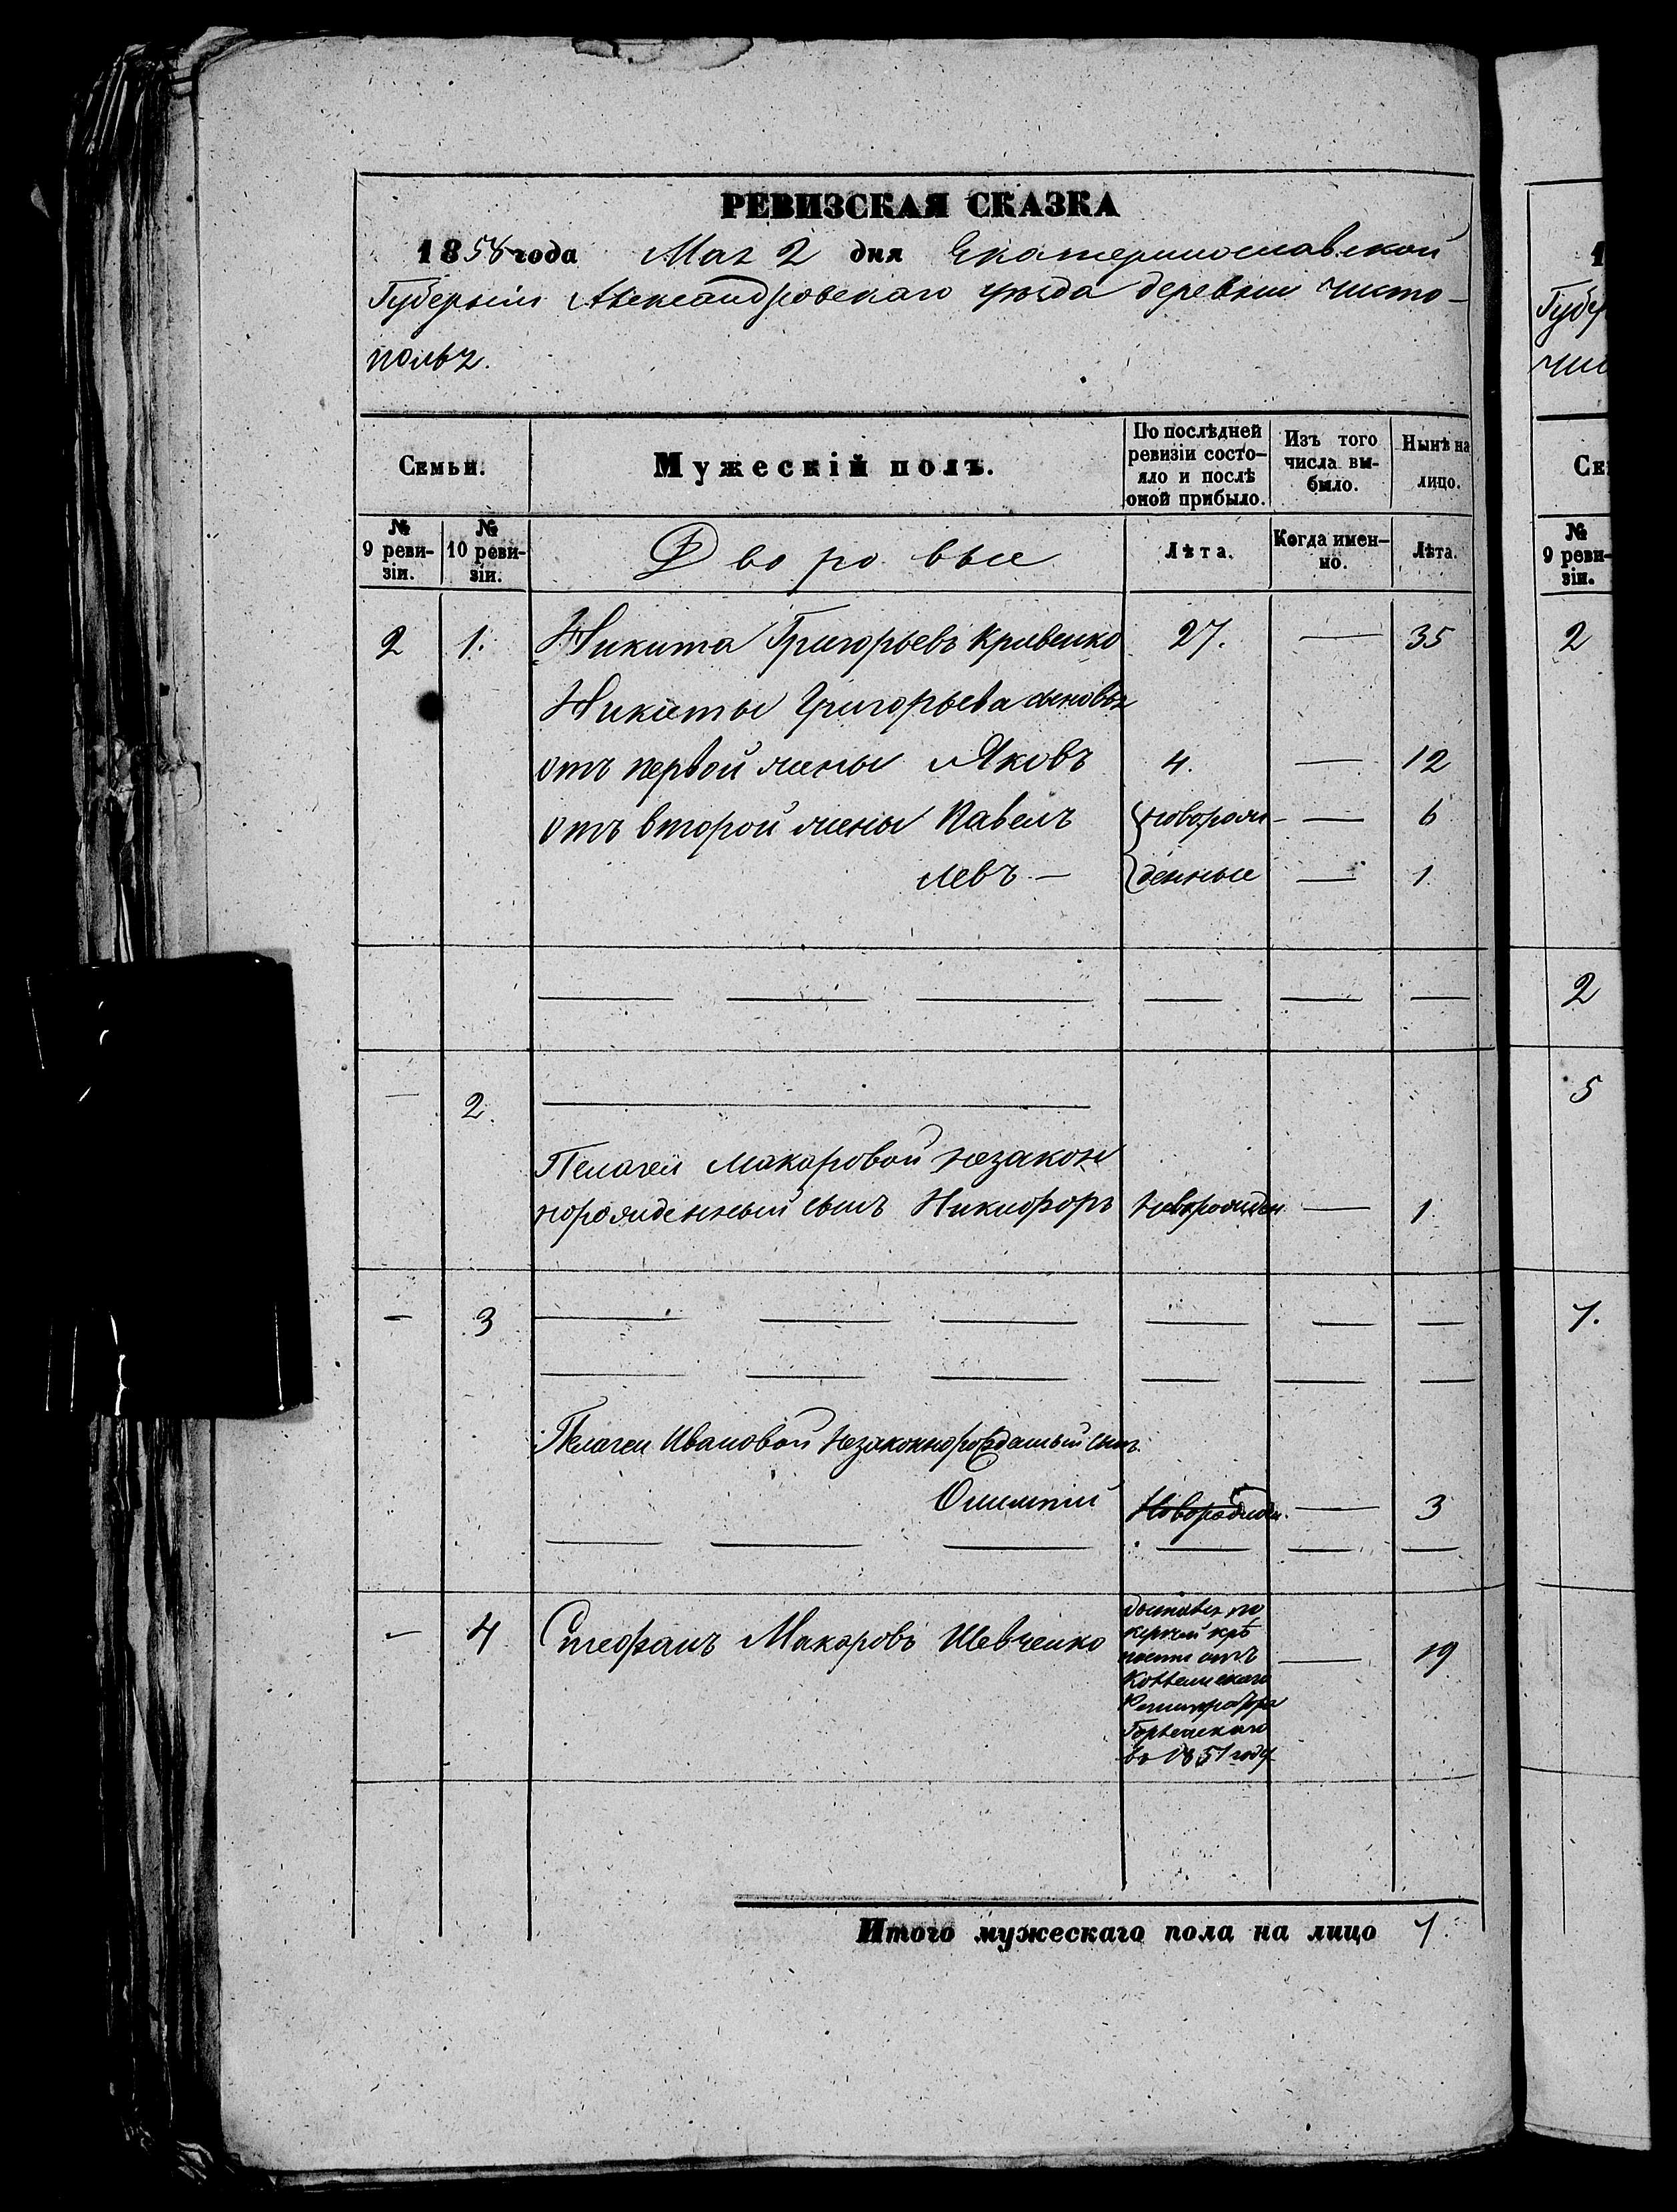 РЕВИЗСКАЯ СКАЗКА
1858 года Мая 2 дня Екатеринославской
Губерніи Александровскаго уѣзда деревни Чисто-
полья.
Семьи.
Мужескій полъ.
По послѣдней ревизіи состояло и послѣ оной прибыло.
Изъ того числа выбыло.
Нынѣ на лицо.
№ 9 ревизіи.
№ 10 ревизіи.
Дворовые
Лѣта.
Когда именно.
Лѣта.
2 1. Никита Григорьевъ Кривенко 27. — 35
Никиты Григорьева сыновья
отъ первой жены Яковъ 4. — 12
отъ второй жены Павелъ новорож- — 6
Левъ — денные — 1
— 2.
Пелагеи Макаровой незакон
норожденный сынъ Никифоръ новорожден — 1
— 3
Пелагеи Ивановой незаконнорожданый сынъ
Олимпій Новорожден. — 3
— 4 Стефанъ Макаровъ Шевченко — 19
достался по
купчей крѣ
пости отъ
Регистратора
въ 1851 году
Итого мужескаго пола на лицо 7.
1
Губер
чис
Се
№
9 реви-
зіи.
2
2
5
7.